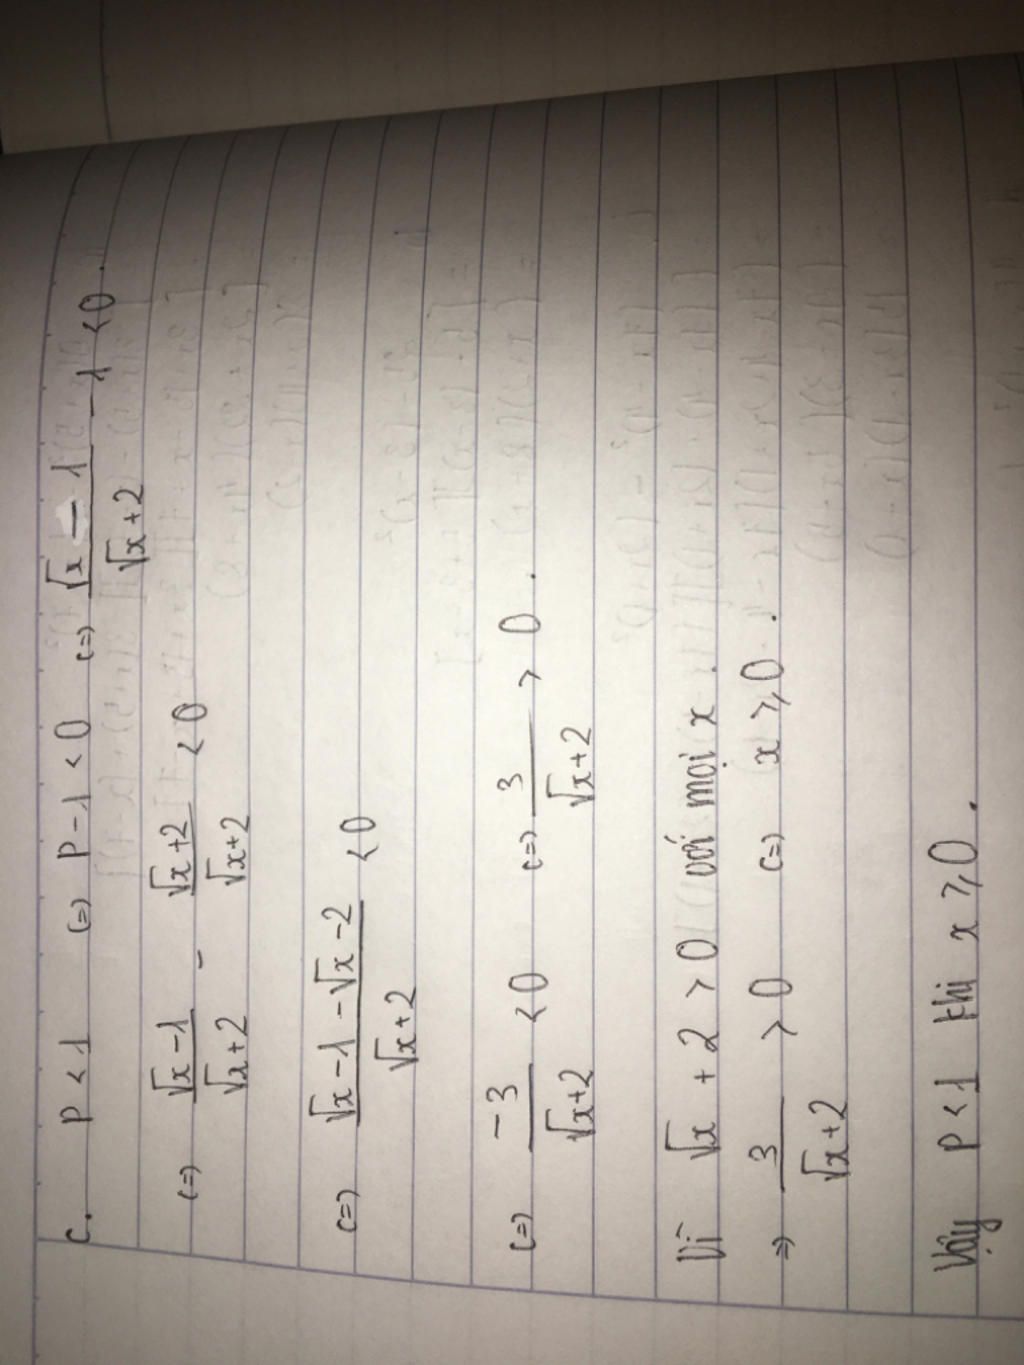 c. P < 1 (=) P - 1 < 0 (=) (√x - 1)/(√x + 2) - 1 < 0.
(=) (√x - 1)/(√x + 2) - (√x + 2)/(√x + 2) < 0
(=) (√x - 1 - √x - 2)/(√x + 2) < 0
(=) -3/(√x + 2) < 0 (=) 3/(√x + 2) > 0.
Vì √x + 2 > 0 với mọi x.
=) 3/(√x + 2) > 0 (=) x ⩾ 0.
Vậy P < 1 khi x ⩾ 0.